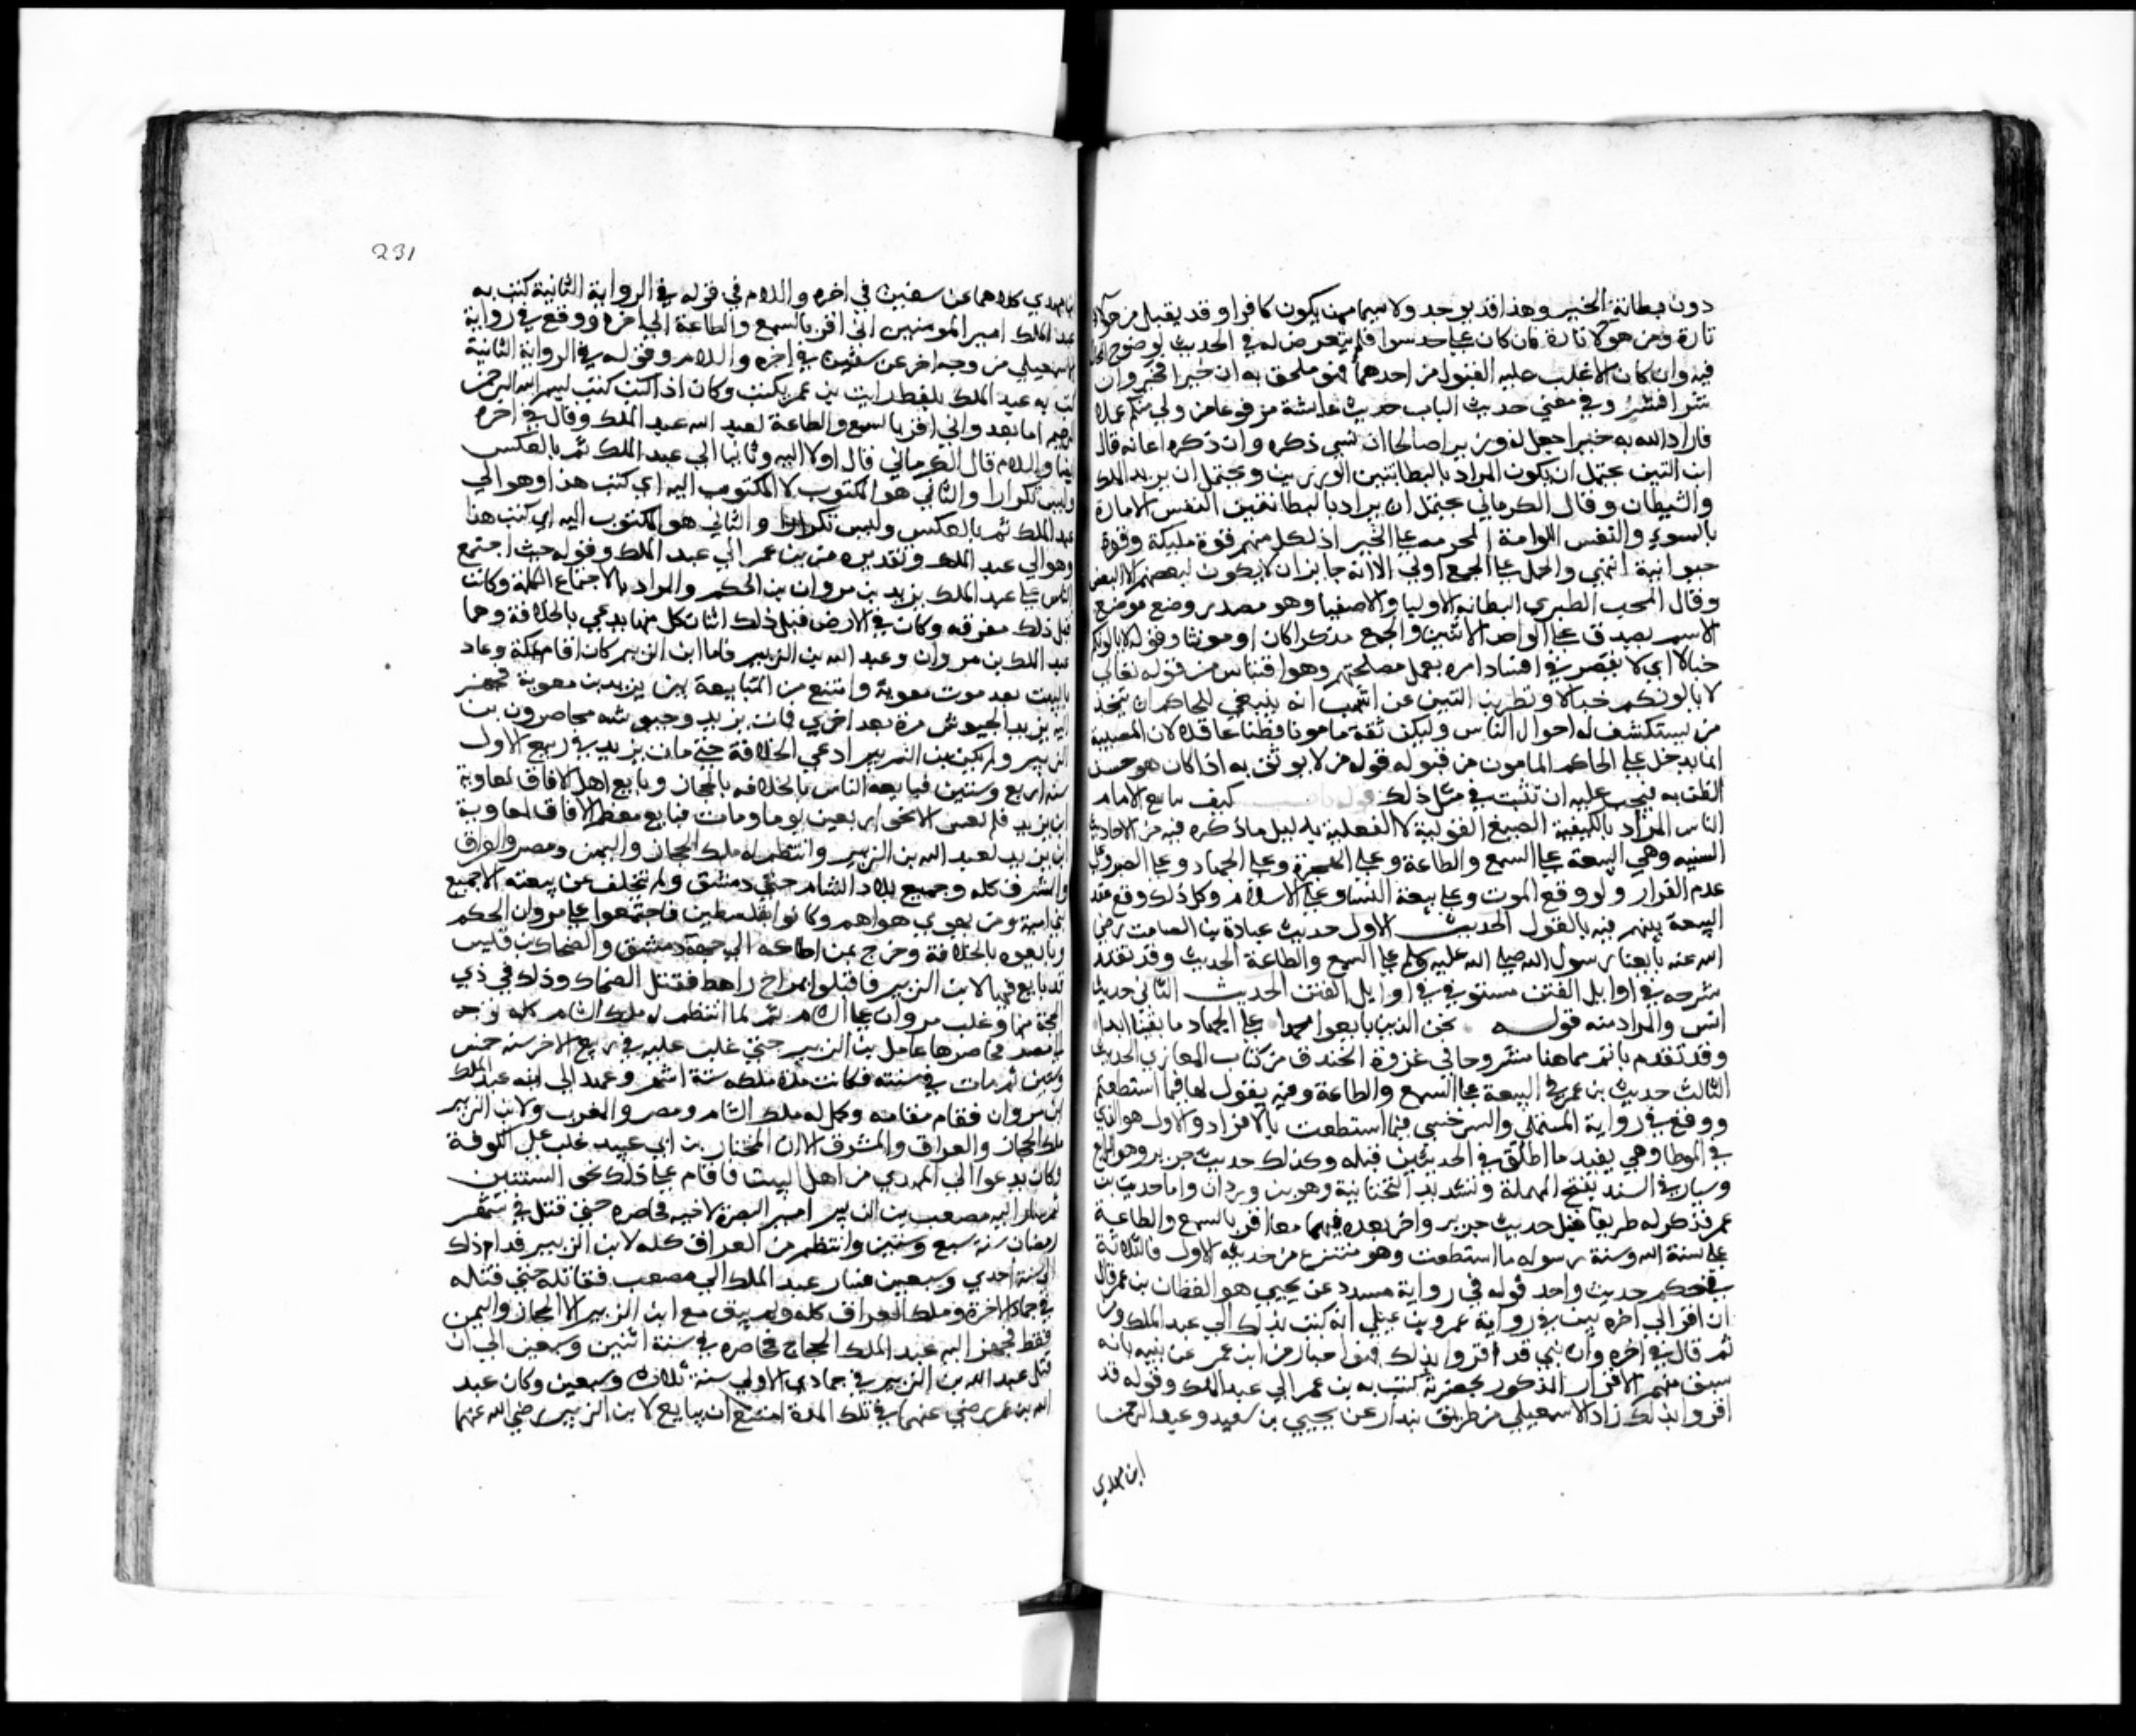 دون بطانة الخير وهذا قد يوجد ولا سيما ممن يكون كافرا وقد يقبل من هؤلاء
تارة ومن هؤلا تارة فان كان على حد سوا فلم يتعرض له في الحديث لوضوح الحال
فيه وان كان الاغلب عليه القبول من احدهما فهو ملحق به ان خيرا فخير وان
شرا فشر وفي معني حديث الباب حديث عايشة مرفوعا من ولي منكم عملا
فاراد الله به خيرا جعل له وزيرا صالحا ان نسي ذكره وان ذكره اعانه قال
ابن التين يحتمل ان يكون المراد بالبطانتين الوزيرين ويحتمل ان يريد الملك
والشيطان وقال الكرماني يحتمل ان يراد بالبطانتين النفس الامارة
بالسوء والنفس اللوامة المحرضه على الخير اذ لكل منهم قوة ملكية وقوة
حيوانية انتهي والحمل على الجمع اولي الا انه جايز ان لا يكون لبعضهم الا البعض
وقال المحب الطبري البطانه الاوليا والاصفيا وهو مصدر وضع موضع
الاسم يصدق على الواحد والاثنين والجمع مذكرا كان او مونثا وقوله لا يالونكم
خبالا اي لا يقصر في افساد امره بعمل مصلحتهم وهو اقتباس من قوله تعالي
لا يالونكم خبالا ونقل بن التين عن اشهب انه ينبغي للحاكم ان يتخذ
من يستكشف له احوال الناس وليكن ثقة مامونا فطنا عاقلا لان المصيبة
انما تدخل على الحاكم المامون من قبوله قول من لا يوثق به اذا كان هو حسن
الظن به فيجب عليه ان يتثبت في مثل ذلك قوله باب كيف يبايع الامام
الناس المراد بالكيفية الصيغ القولية لا الفعلية بدليل ما ذكره فيه من الاحاديث
الستة وهي البيعة على السمع والطاعة وعلى الهجرة وعلى الجهاد وعلى الصبر وعلى
عدم الفرار ولو وقع الموت وعلى بيعة النسا وعلى الاسلام وكل ذلك وقع عند
البيعة بينهم فيه بالقول الحديث الاول حديث عبادة بن الصامت رضي
الله عنه بايعنا رسول الله صلي الله عليه وسلم على السمع والطاعة الحديث وقد تقدم
شرحه في اوايل الفتن مستوفي في اوايل الفتن الحديث الثاني حديث
انس والمراد منه قوله نحن الذين بايعوا محمدا على الجهاد ما بقينا ابدا
وقد تقدم باتم مما هنا مشروحا في غزوة الخندق من كتاب المغازي الحديث
الثالث حديث بن عمر في البيعة على السمع والطاعة وفيه يقول لها فيما استطعتم
ووقع في رواية المستملي والسرخسي فيما استطعت بالافراد والاول هو الذي
في الموطا وهي يقيد ما اطلق في الحديثين قبله وكذلك حديث جرير وهو الرابع
وسيار في السند بفتح المهملة وتشديد التحتانية وهو بن وردان واما حديث بن
عمر فذكر له طريقا قبل حديث جرير واخر بعده فيهما معا اقر بالسمع والطاعة
على سنة الله وسنة رسوله ما استطعت وهو منتزع من حديثه الاول فالثلاثة
في حكم حديث واحد قوله في رواية مسدد عن يحيي هو القطان بن عمر قال
ان اقر الى اخره بين في رواية عمرو بن علي انه كتب بذلك الي عبد الملك ومن
ثم قال في اخره وان بني قد اقروا بذلك فهو اخبار من ابن عمر عن بنيه بانه
سبق منهم الاقرار المذكور بحضرته كتب به بن عمر الي عبد الملك وقوله قد
اقروا بذلك زاد الاسمعيلي من طريق بندار عن يحيي بن سعيد وعبد الرحمن
ابن مهدي
231
بن مهدي كلاهما عن سفين في اخره والسلام في قوله في الرواية الثانية كتب به
عبد الملك امير المومنين اني اقر بالسمع والطاعة الي اخره ووقع في رواية
الاسمعيلي من وجه اخر عن سفين في اخره والسلام وقوله في الرواية الثانية
كتب به عبد الملك بلفظ رايت بن عمر يكتب وكان اذا كتب كتب بسم الله الرحمن
الرحيم اما بعد واني اقر بالسمع والطاعة لعبد الله عبد الملك وقال في اخره
ايضا والسلام قال الكرماني قال اولا اليه وثانيا الي عبد الملك ثم بالعكس
وليس تكرارا والثاني هو المكتوب لا المكتوب اليه اي كتب هذا وهو الي
عبد الملك ثم بالعكس وليس تكرارا والثاني هو المكتوب اليه اي كتب هذا
وهو الي عبد الملك وتقديره من بن عمر الي عبد الملك وقوله حيث اجتمع
الناس على عبد الملك يزيد بن مروان بن الحكم والمراد بالاجتماع الكلمة وكانت
قبل ذلك مفرقه وكان في الارض قبل ذلك اثنان كل منهما يدعي بالخلافة وهما
عبد الملك بن مروان وعبد الله بن الزبير فاما ابن الزبير كان اقام بمكة وعاد
بالبيت بعد موت معوية وامتنع من المبايعة يزيد بن معوية فجهز
اليه يزيد الجيوش مرة بعد اخري فمات يزيد وجيوشه محاصرون بن
الزبير ولم يكن بن الزبير ادعي الخلافة حتي مات يزيد في ربيع الاول
سنة اربع وستين فبايعه الناس بالخلافه بالحجاز وبايع اهل الافاق لمعاوية
ابن يزيد فلم يعش الا نحو اربعين يوما ومات فبايع معظم الافاق لمعاوية
ابن يزيد لعبد الله بن الزبير وانتظم له ملك الحجاز واليمن ومصر والعراق
والشرق كله وجميع بلاد الشام حتي دمشق ولم يتخلف عن بيعته الا جميع
بني امية ومن يهوي هواهم وكانوا بفلسطين فاجتمعوا على مروان الحكم
وبايعوه بالخلافة وخرج بمن اطاعه الي جهة دمشق والضحاك بن قيس
قد بايع فيها لابن الزبير فاقتتلوا بمرج راهط فقتل الضحاك وذلك في ذي
الحجة منها وغلب مروان على الشام ثم لما انتظم له ملك الشام كله توجه
الي مصر فحاصرها عامل بن الزبير حتي غلب عليه في ربيع الاخر سنه خمس
وستين ثم مات في سنته فكانت مدة ملكه ستة اشهر وعهد الي ابنه عبد الملك
ابن مروان فقام مقامه وكمل له ملك الشام ومصر والمغرب ولابن الزبير
ملك الحجاز والعراق والمشرق الا ان المختار بن ابي عبيد غلب على الكوفة
وكان يدعوا الي المهدي من اهل البيت فاقام على ذلك نحو السنتين
ثم سار اليه مصعب بن الزبير امير البصرة لاخيه فحاصره حتي قتل في شهر
رمضان سنة سبع وستين وانتظم من العراق كله لابن الزبير فدام ذلك
الي سنة احدي وسبعين فسار عبد الملك الي مصعب فقاتله حتي قتله
في جمادي الاخرة وملك العراق كله ولم يبق مع ابن الزبير الا الحجاز واليمن
فقط فجهز اليه عبد الملك الحجاج فحاصره في سنة اثنين وسبعين الي ان
قتل عبد الله بن الزبير في جمادي الاولي سنة ثلاث وسبعين وكان عبد
الله بن عمر رضي عنهما في تلك المدة امتنع ان يبايع لابن الزبير رضي الله عنهما